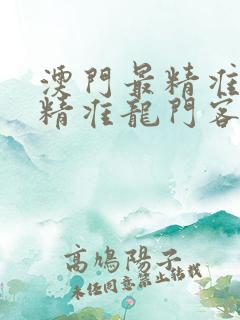 澳門最精准
精准龍門客
高鳩陽子
未经同意禁止转载